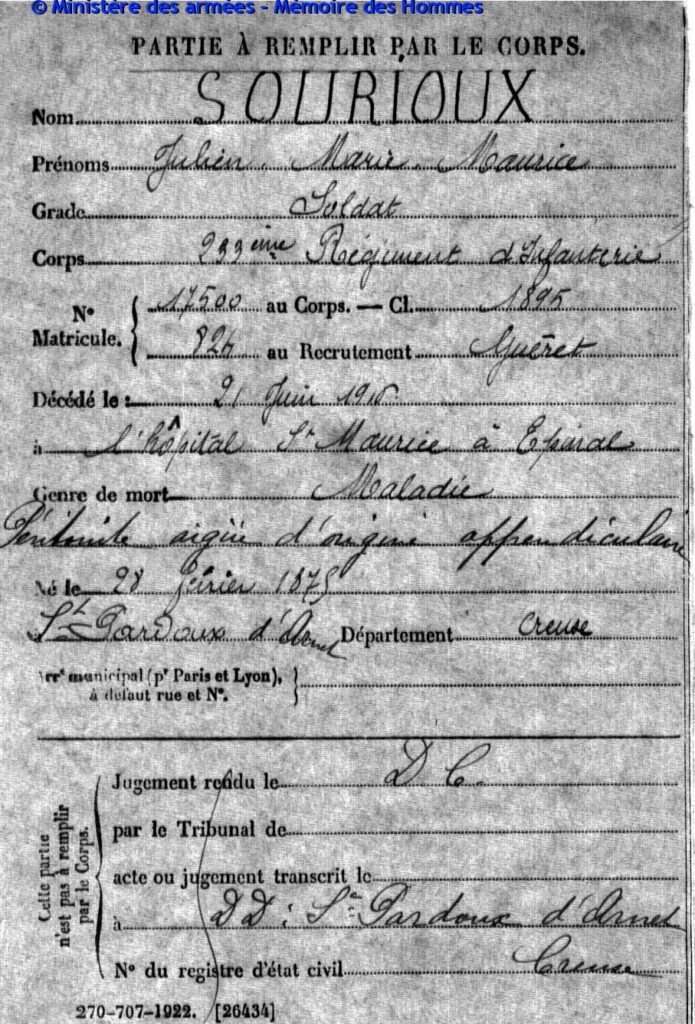 © Ministère des armées - Mémoire des Hommes
PARTIE À REMPLIR PAR LE CORPS.
Nom SOURIOUX
Prénoms Julien Marie Maurice
Grade Soldat
Corps 233ème Régiment d'Infanterie
N° Matricule. { 17500 au Corps. — Cl. 1895
824 au Recrutement Guéret
Décédé le : 21 Juin 1915
à l'hôpital St Maurice à Epinal
Genre de mort Maladie
Péritonite aigüe d'origine appendiculaire
Né le 28 février 1875
St Pardoux d'Arnet Département Creuse
Arrt municipal (pr Paris et Lyon),
à défaut rue et N°.
Cette partie n'est pas à remplir par le Corps.
Jugement rendu le D C.
par le Tribunal de
acte ou jugement transcrit le
à DD : St Pardoux d'Arnet
N° du registre d'état civil Creuse
270-707-1922. [26434]